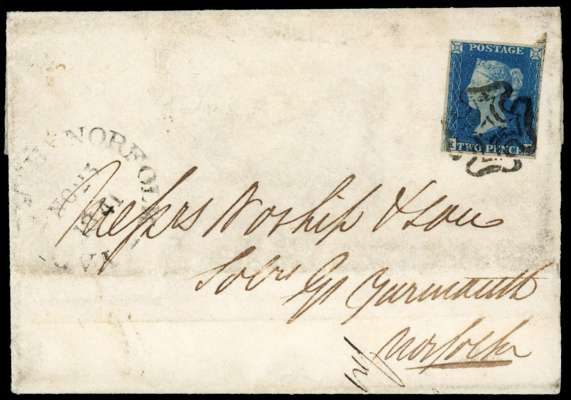 POSTAGE
TWO PENCE
NORFOLK
NO
1841
Messrs Worship & Son
Solrs Gt Yarmouth
Norfolk